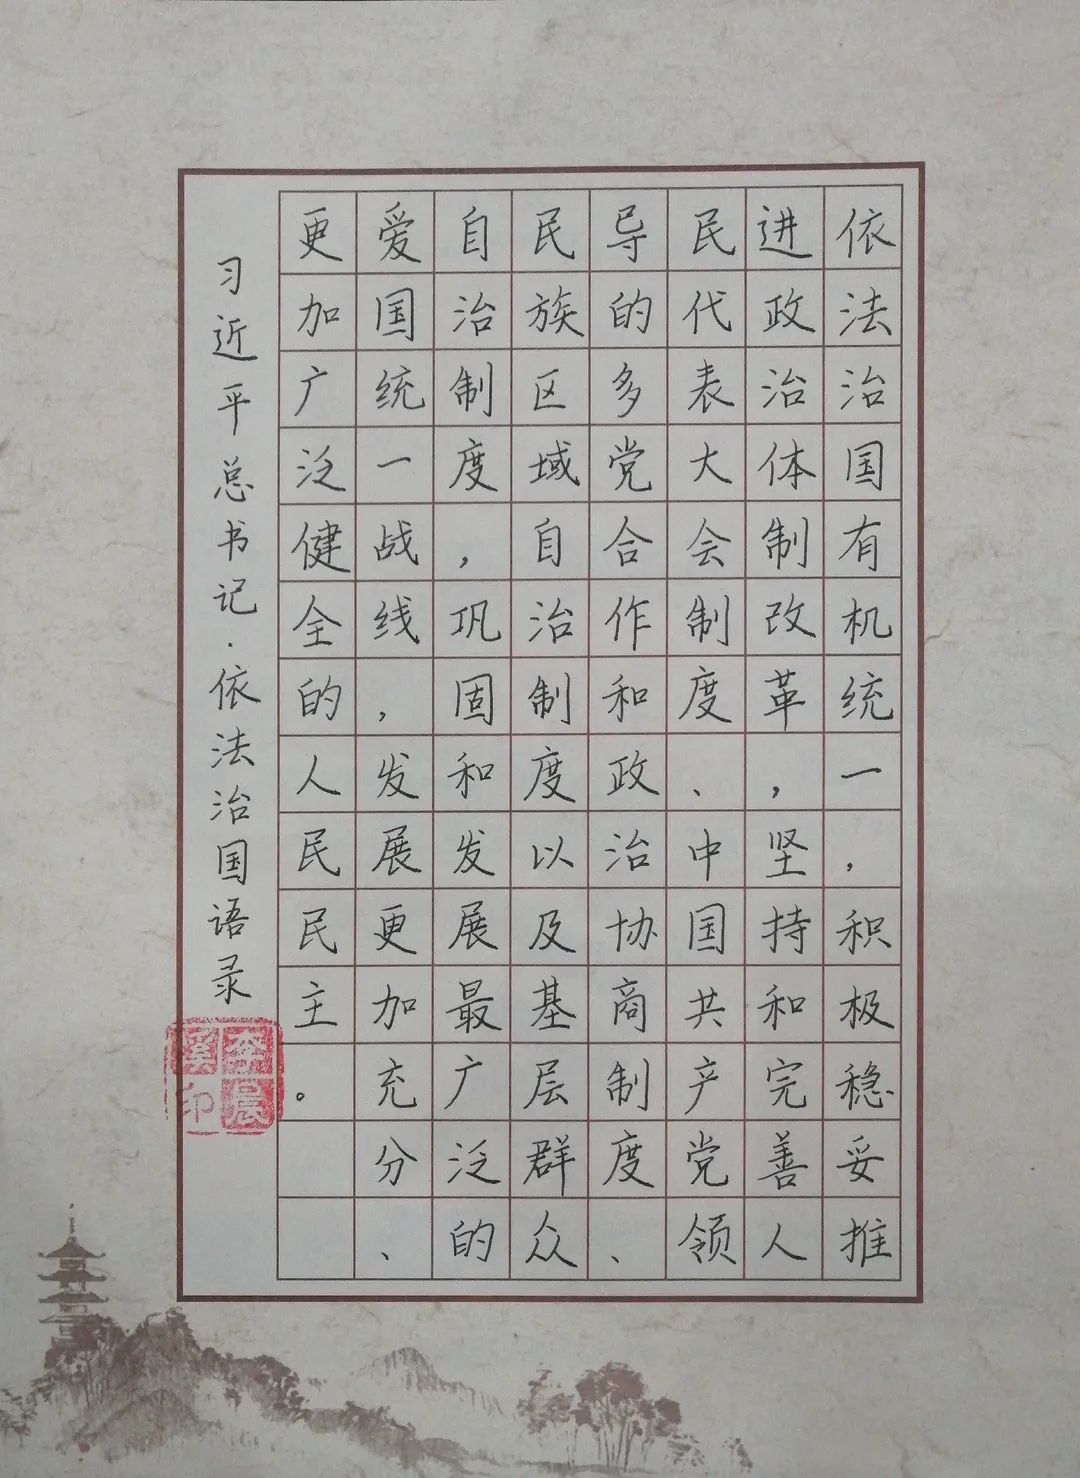 依法治国有机统一，积极稳妥推
进政治体制改革，坚持和完善人
民代表大会制度、中国共产党领
导的多党合作和政治协商制度、
民族区域自治制度以及基层群众
自治制度，巩固和发展最广泛的
爱国统一战线，发展更加充分、
更加广泛健全的人民民主。
习近平总书记·依法治国语录
李晨溪印